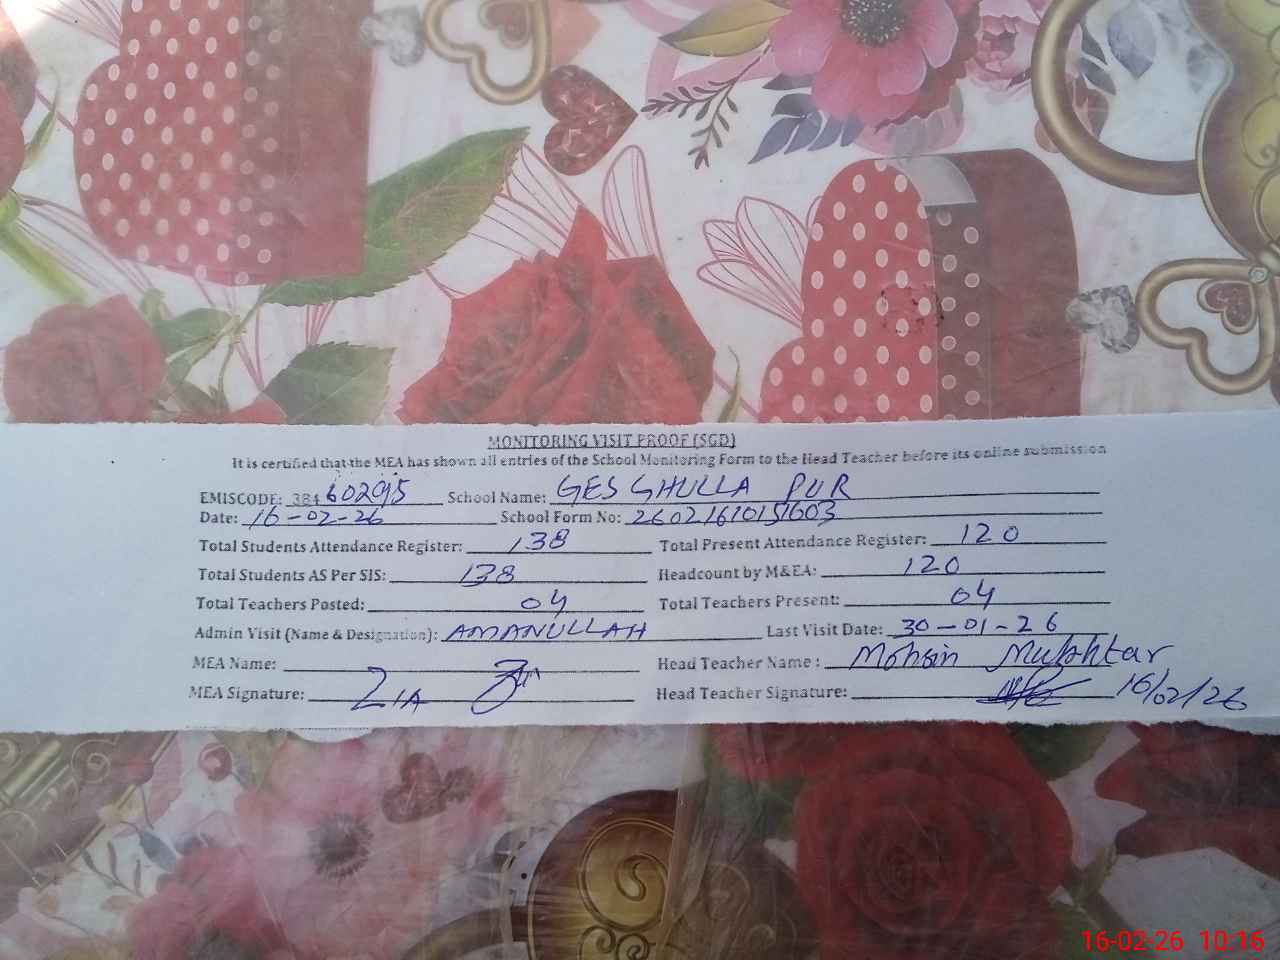 MONITORING VISIT PROOF (SGD)
It is certified that the MEA has shown all entries of the School Monitoring Form to the Head Teacher before its online submission
EMISCODE: 38460295 School Name: GES GHULLA PUR
Date: 16-02-26 School Form No: 26021610151603
Total Students Attendance Register: 138 Total Present Attendance Register: 120
Total Students AS Per SIS: 138 Headcount by M&EA: 120
Total Teachers Posted: 04 Total Teachers Present: 04
Admin Visit (Name & Designation): AMANULLAH Last Visit Date: 30-01-26
MEA Name: Head Teacher Name: Mohsin Mukhtar
MEA Signature: ZIA Head Teacher Signature: 16/02/26
16-02-26 10:16